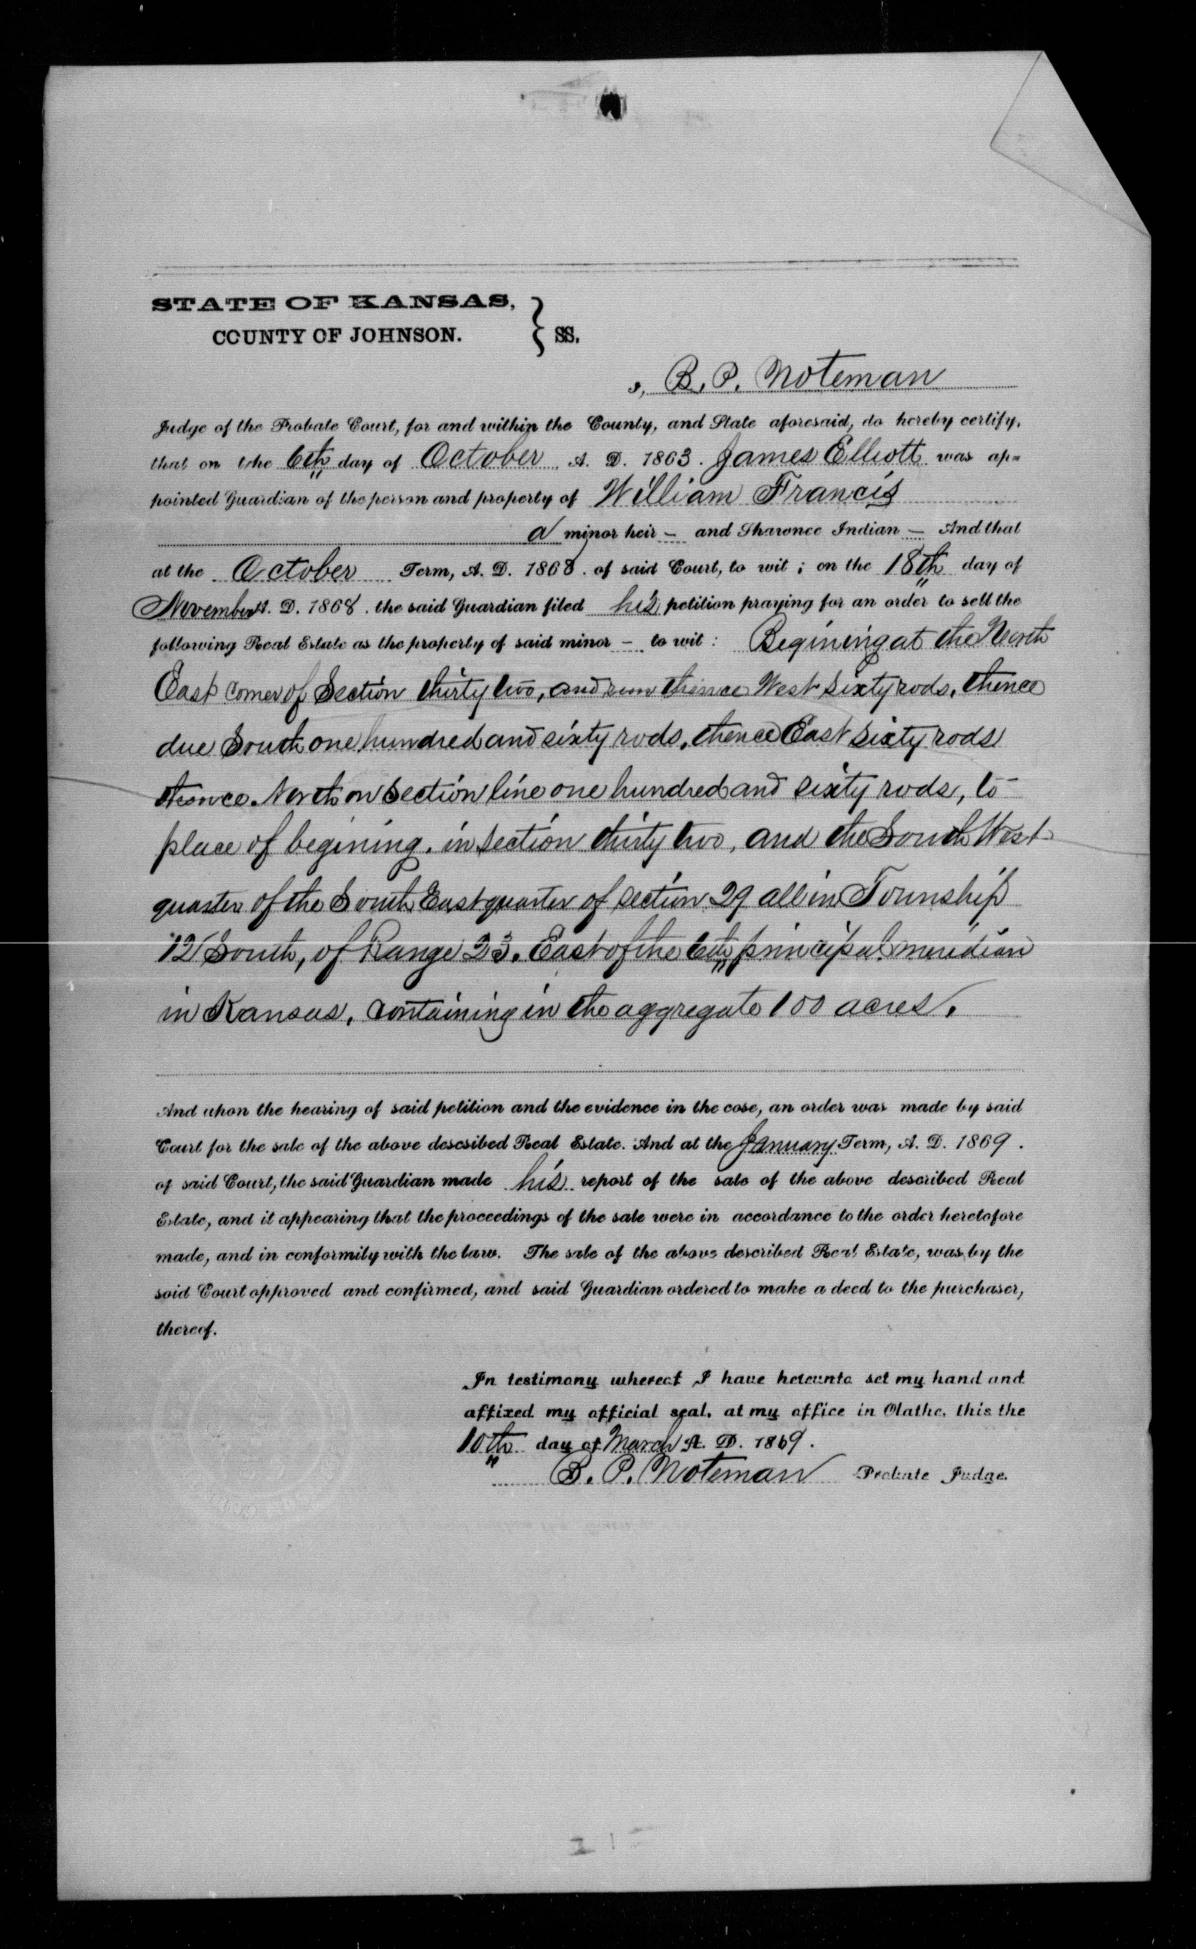 STATE OF KANSAS,
COUNTY OF JOHNSON. } SS.
I, B. P. Noteman
Judge of the Probate Court, for and within the County, and State aforesaid, do hereby certify,
that on the 6th day of October A. D. 1863. James Elliott was ap=
pointed Guardian of the person and property of William Francis
a minor heir — and Shawnee Indian — And that
at the October Term, A. D. 1868. of said Court, to wit; on the 18th day of
November A. D. 1868. the said Guardian filed his petition praying for an order to sell the
following Real Estate as the property of said minor — to wit: Begining at the North
East corner of Section thirty two, and run thence West sixty rods, thence
due South one hundred and sixty rods, thence East sixty rods
thence North on Section line one hundred and sixty rods, to
place of begining. in section thirty two, and the South West
quarter of the South East quarter of section 29 all in Township
12 South, of Range 23. East of the 6th principal meridian
in Kansas, containing in the aggregate 100 acres.
And upon the hearing of said petition and the evidence in the cose, an order was made by said
Court for the sale of the above descsibed Real Estate. And at the January Term, A. D. 1869.
of said Court, the said Guardian made his report of the sale of the above described Real
Estate, and it appearing that the proceedings of the sale were in accordance to the order heretofore
made, and in conformity with the law. The sale of the above described Real Estate, was by the
said Court approved and confirmed, and said Guardian ordered to make a deed to the purchaser,
thereof.
In testimony whereof I have hereunto set my hand and
affixed my official seal, at my office in Olathe, this the
10th day of March A. D. 1869.
B. P. Noteman Probate Judge.